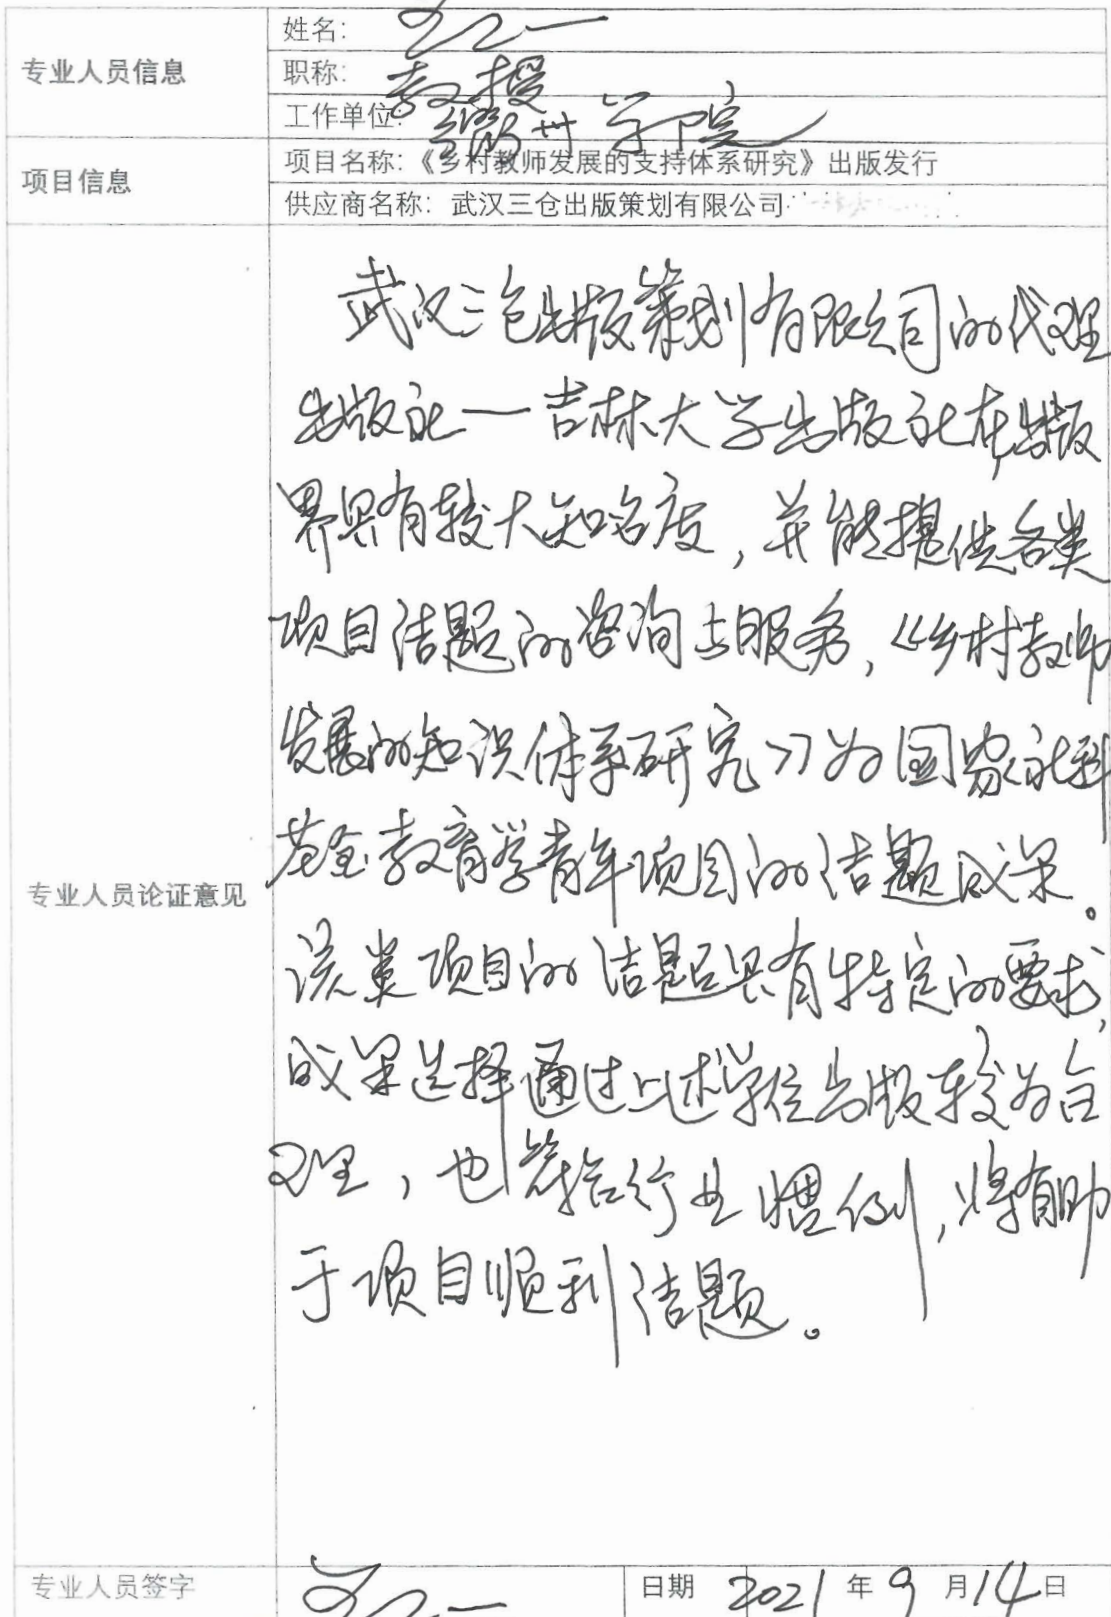 专业人员信息
姓名:
职称: 教授
工作单位: 州学院
项目信息
项目名称:《乡村教师发展的支持体系研究》出版发行
供应商名称: 武汉三仓出版策划有限公司
专业人员论证意见
武汉三仓出版策划有限公司的代理
出版社一吉林大学出版社在出版
界具有较大知名度,并能提供各类
项目结题的咨询与服务,《乡村教师
发展的知识体系研究》为国家社科
基金教育学青年项目的结题成果。
该类项目的结题具有特定的要求,
成果选择通过上述单位出版较为合
理,也符合行业惯例,将有助
于项目顺利结题。
专业人员签字
日期 2021年9月14日